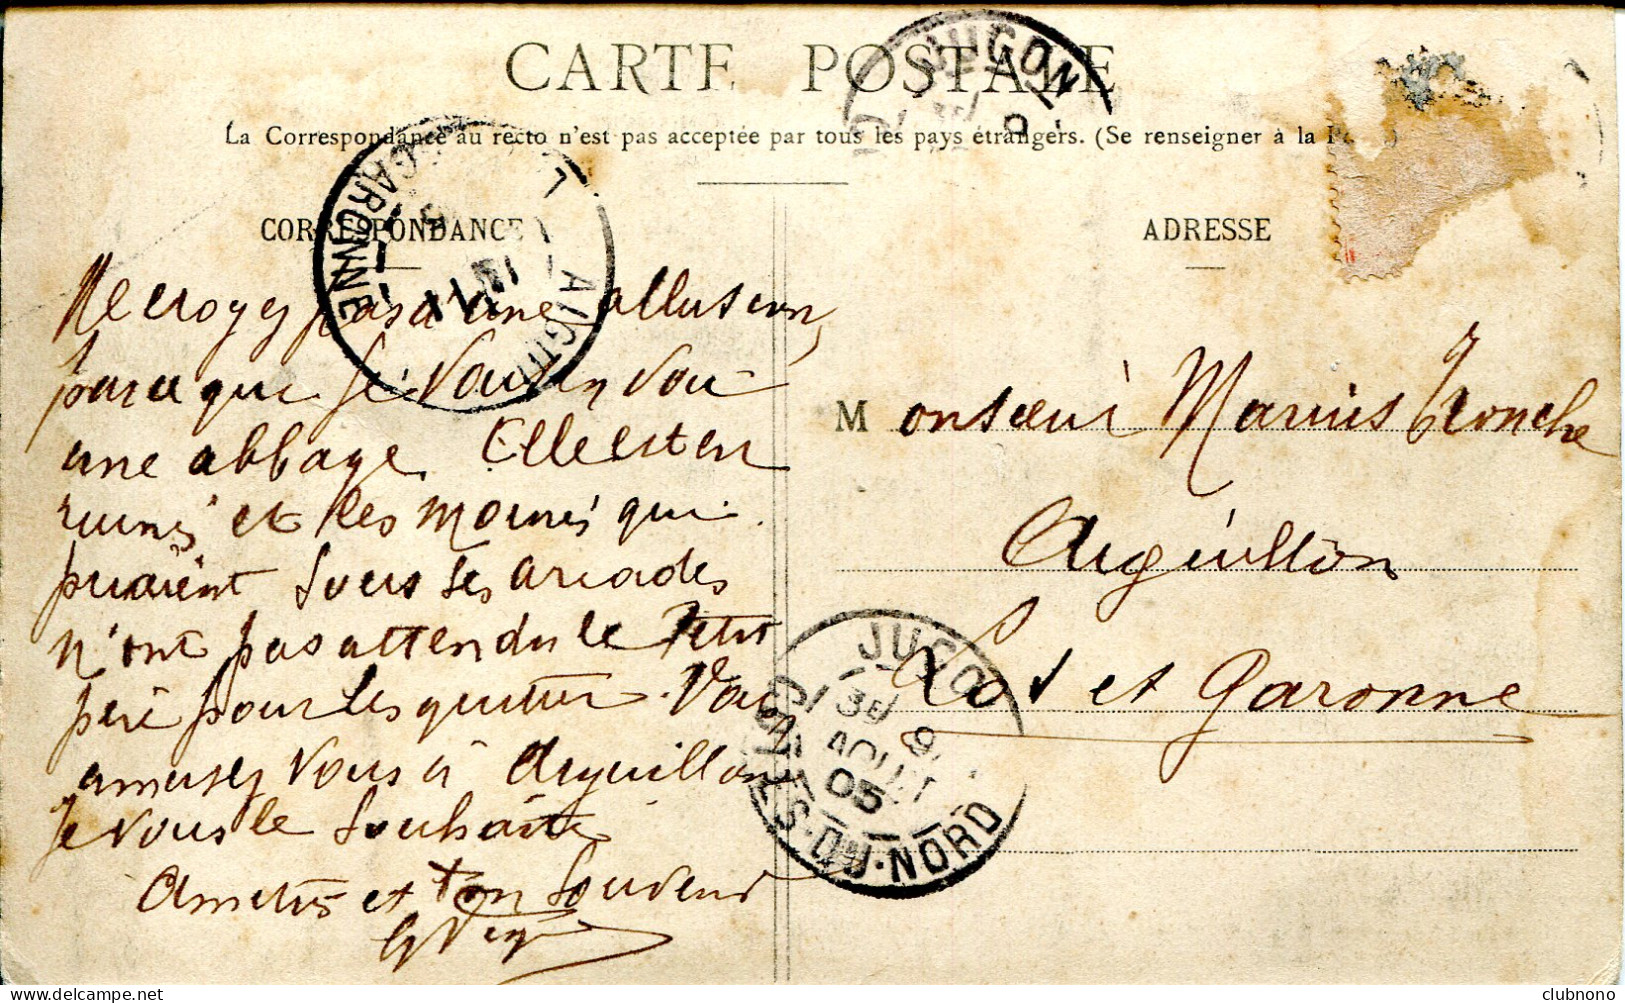 CARTE POSTALE
La Correspondance au recto n'est pas acceptée par tous les pays étrangers. (Se renseigner à la
CORRESPONDANCE
ADRESSE
Ne croyez pas a une allusion,
parceque je vous envoi
une abbaye. Elle est en
ruines et les moines qui
priaient sous ses arcades
n'ont pas attendu le Petit
père pour les quitter. Vous
amusez vous à Aiguillon
Je vous le souhaite
Amitiés et bon souvenir
Monsieur Marius Tronche
Aiguillon
Lot et Garonne
JUGON
JUGO
CÔTES-DU-NORD
3E 9
AOUT
05
GARONNE
AIGUI
clubnono